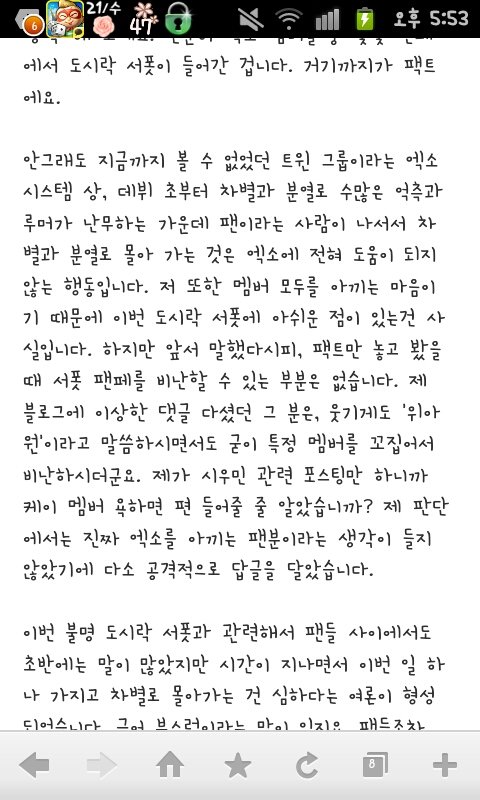 21/수
6
47
오후 5:53
에서 도시락 서폿이 들어간 겁니다. 거기까지가 팩트
에요.
안그래도 지금까지 볼 수 없었던 트윈 그룹이라는 엑소
시스템 상, 데뷔 초부터 차별과 분열로 수많은 억측과
루머가 난무하는 가운데 팬이라는 사람이 나서서 차
별과 분열로 몰아 가는 것은 엑소에 전혀 도움이 되지
않는 행동입니다. 저 또한 멤버 모두를 아끼는 마음이
기 때문에 이번 도시락 서폿에 아쉬운 점이 있는건 사
실입니다. 하지만 앞서 말했다시피, 팩트만 놓고 봤을
때 서폿 팬페를 비난할 수 있는 부분은 없습니다. 제
블로그에 이상한 댓글 다셨던 그 분은, 웃기게도 '위아
원'이라고 말씀하시면서도 굳이 특정 멤버를 꼬집어서
비난하시더군요. 제가 시우민 관련 포스팅만 하니까
케이 멤버 욕하면 편 들어줄 줄 알았습니까? 제 판단
에서는 진짜 엑소를 아끼는 팬분이라는 생각이 들지
않았기에 다소 공격적으로 답글을 달았습니다.
이번 불명 도시락 서폿과 관련해서 팬들 사이에서도
초반에는 말이 많았지만 시간이 지나면서 이번 일 하
나 가지고 차별로 몰아가는 건 심하다는 여론이 형성
되었습니다.
8